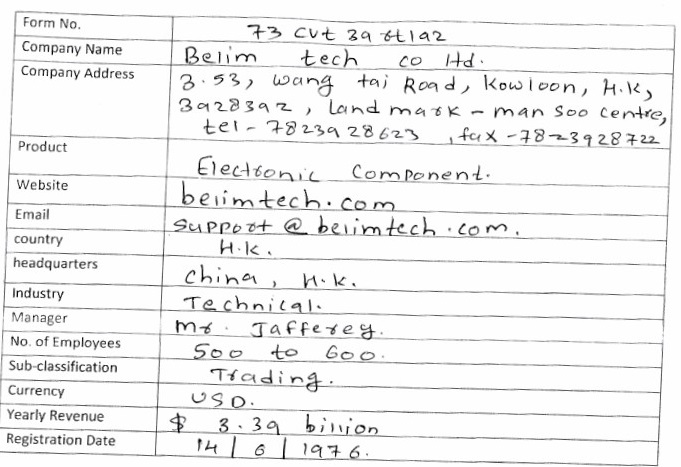 Form No. 73 cvt 39 6tla2
Company Name Belim tech co ltd.
Company Address 3.53, wang tai Road, Kowloon, H.K,
3928392, Land mark - man soo centre,
tel - 7823928623, fax - 7823928722
Product Electronic Component.
Website belimtech.com
Email support@belimtech.com.
country H.K.
headquarters China, H.K.
Industry Technical.
Manager Mr. Jafferey.
No. of Employees 500 to 600.
Sub-classification Trading.
Currency USD.
Yearly Revenue $ 3.39 billion
Registration Date 14/6/1976.